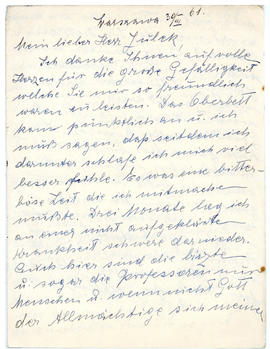 Warszawa 30/VI 61.
Mein lieber Herr Julek,
Ich danke Ihnen auf volle
Herzen für die große Gefälligkeit
welche Sie mir so freundlich
waren zu leisten. Das Oberbett
kam pünktlich an u. ich
muß sagen, daß seitdem ich
darunter schlafe ich mich viel
besser fühle. Es war eine bitter-
böse Zeit die ich mitmachen
mußte. Drei Monate lag ich
an einer nicht aufgeklärten
Krankheit schwer darnieder.
Auch hier sind die Ärzte
u. sogar die Professoren nur
Menschen u. wenn nicht Gott
der Allmächtige sich meiner